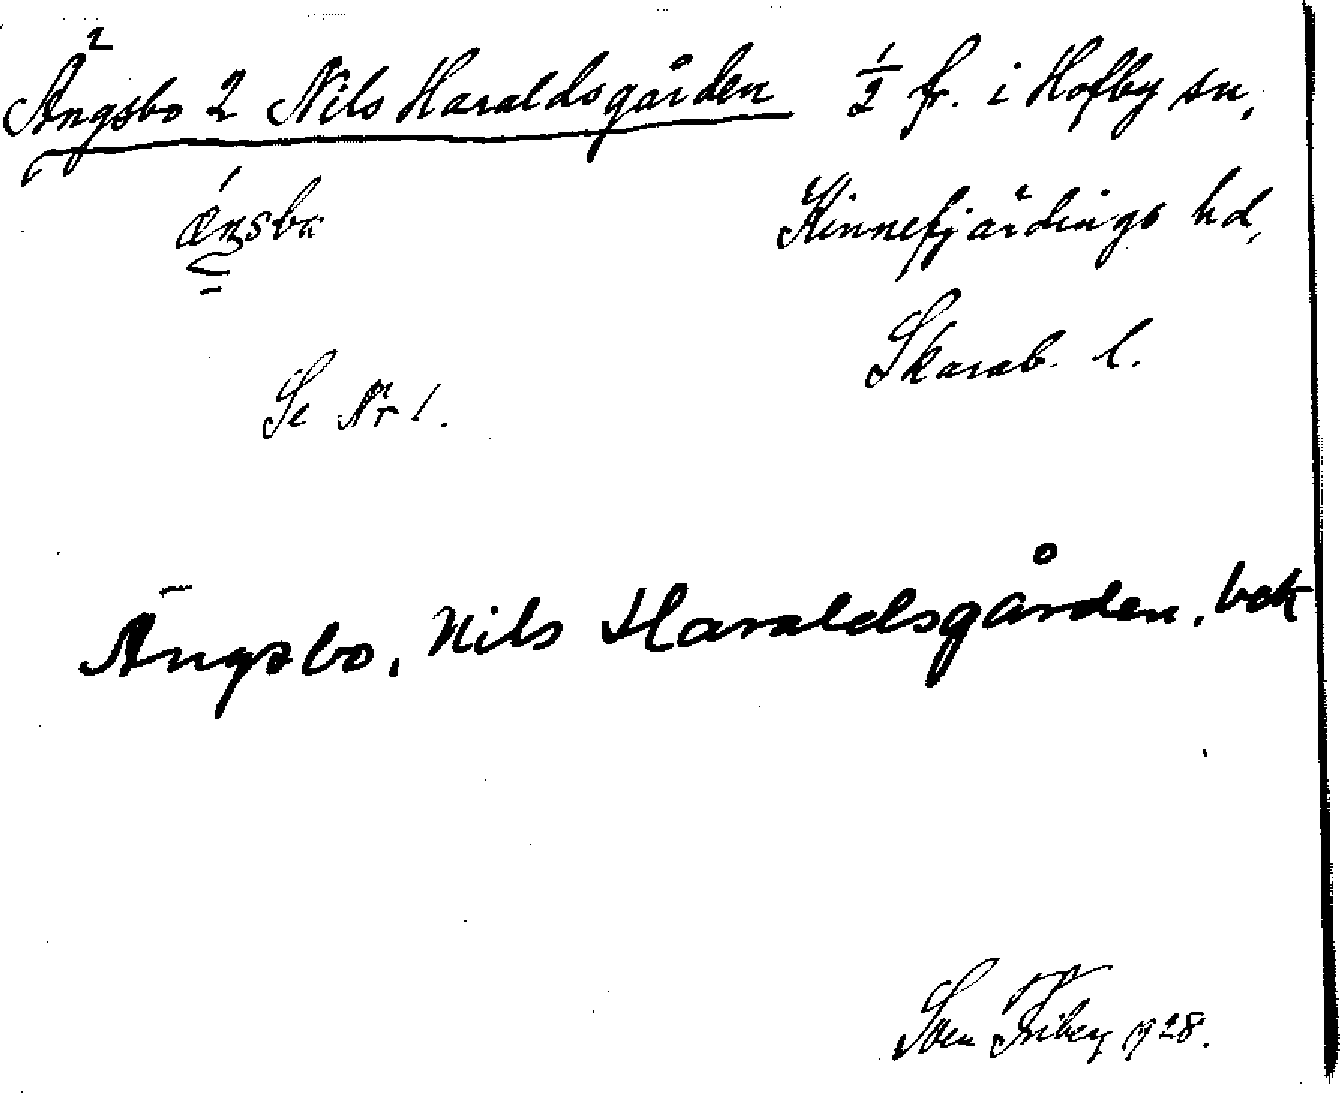 Ängsbo 2 Nils Haraldsgården ½ fr. i Holby sn,
Kinnefjärdings hd,
Skarab. l.
Se Nr 1.
Ängsbo, Nils Haraldsgården, bek
Sven Friberg 1928.